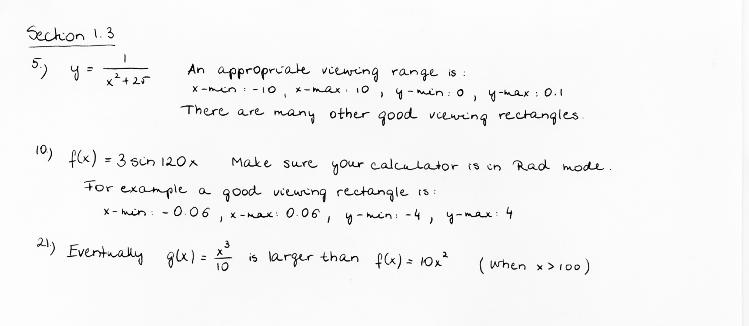 Section 1.3
5.) y = 1/(x²+25) An appropriate viewing range is :
x-min : -10 , x-max : 10 , y-min : 0 , y-max : 0.1
There are many other good viewing rectangles.
10) f(x) = 3 sin 120x Make sure your calculator is in Rad mode.
For example a good viewing rectangle is :
x-min : -0.06 , x-max : 0.06 , y-min : -4 , y-max : 4
21.) Eventually g(x) = x³/10 is larger than f(x) = 10x² (when x > 100)